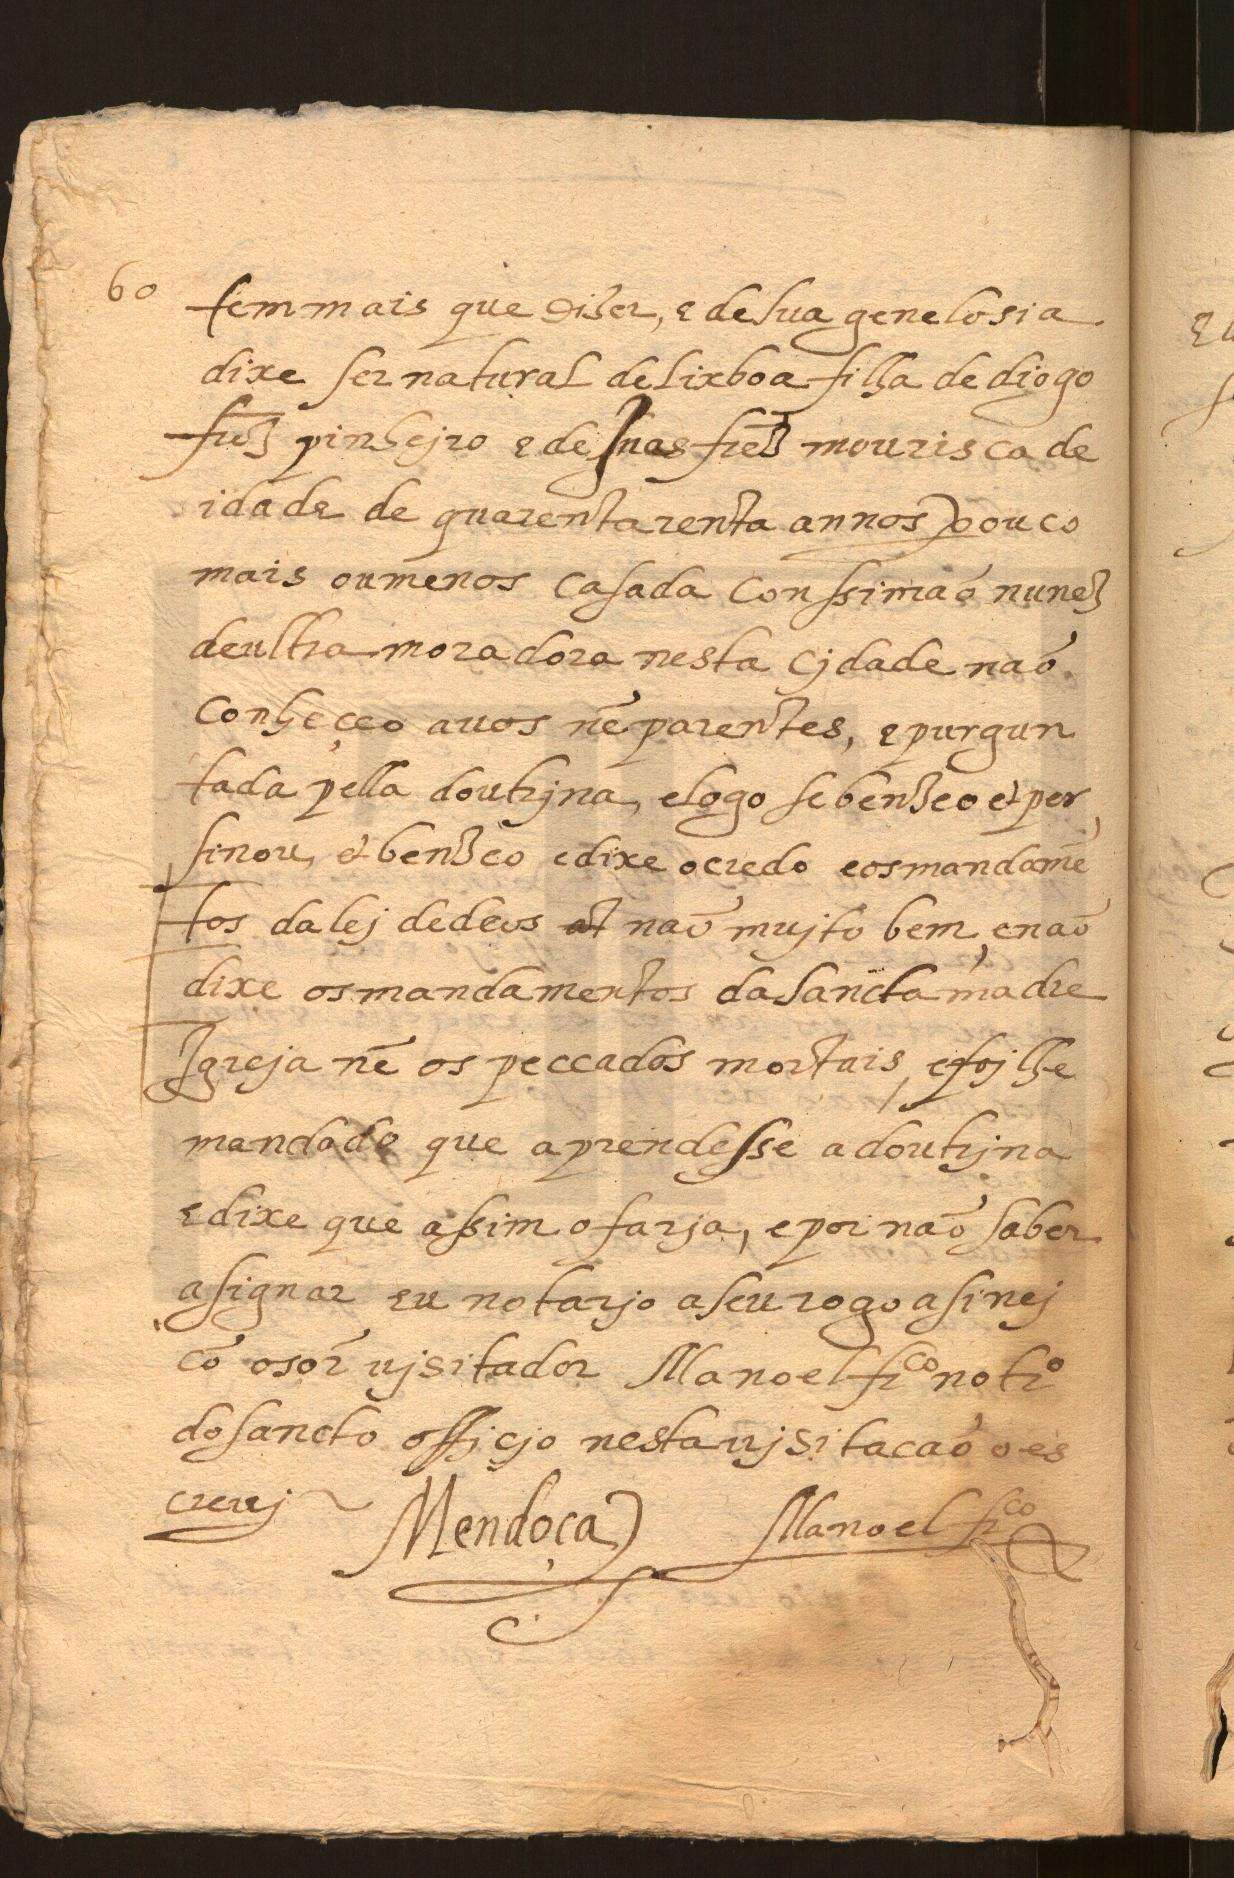 60
tem mais que diser, e de sua genelosia
dixe ser natural de lixboa filha de diogo
frz pinhejro e de Jnas frez mourisca de
idade de quarentarenta annos pouco
mais ou menos casada Com ssimaõ nunez
deultra moradora nesta Cjdade naõ
Conheçeo auos nẽ parentes, e purgun
tada pella doutrjna, e logo se benzeo et per
sinou, et benzeo e dixe o credo e os mandamẽ
tos da lej de deos naõ mujto bem, e naõ
dixe os mandamentos da sancta madre
Jgreja nẽ os peccados mortais, e foj lhe
mandado que aprendesse a doutrjna
e dixe que assim o farja, e por naõ saber
asignar eu notarjo a seu rogo asinej
cõ o sõr ujsitador Manoel frco notro
do sancto officjo nesta ujsitacaõ o es
creuj
Mendoça
Manoel frco